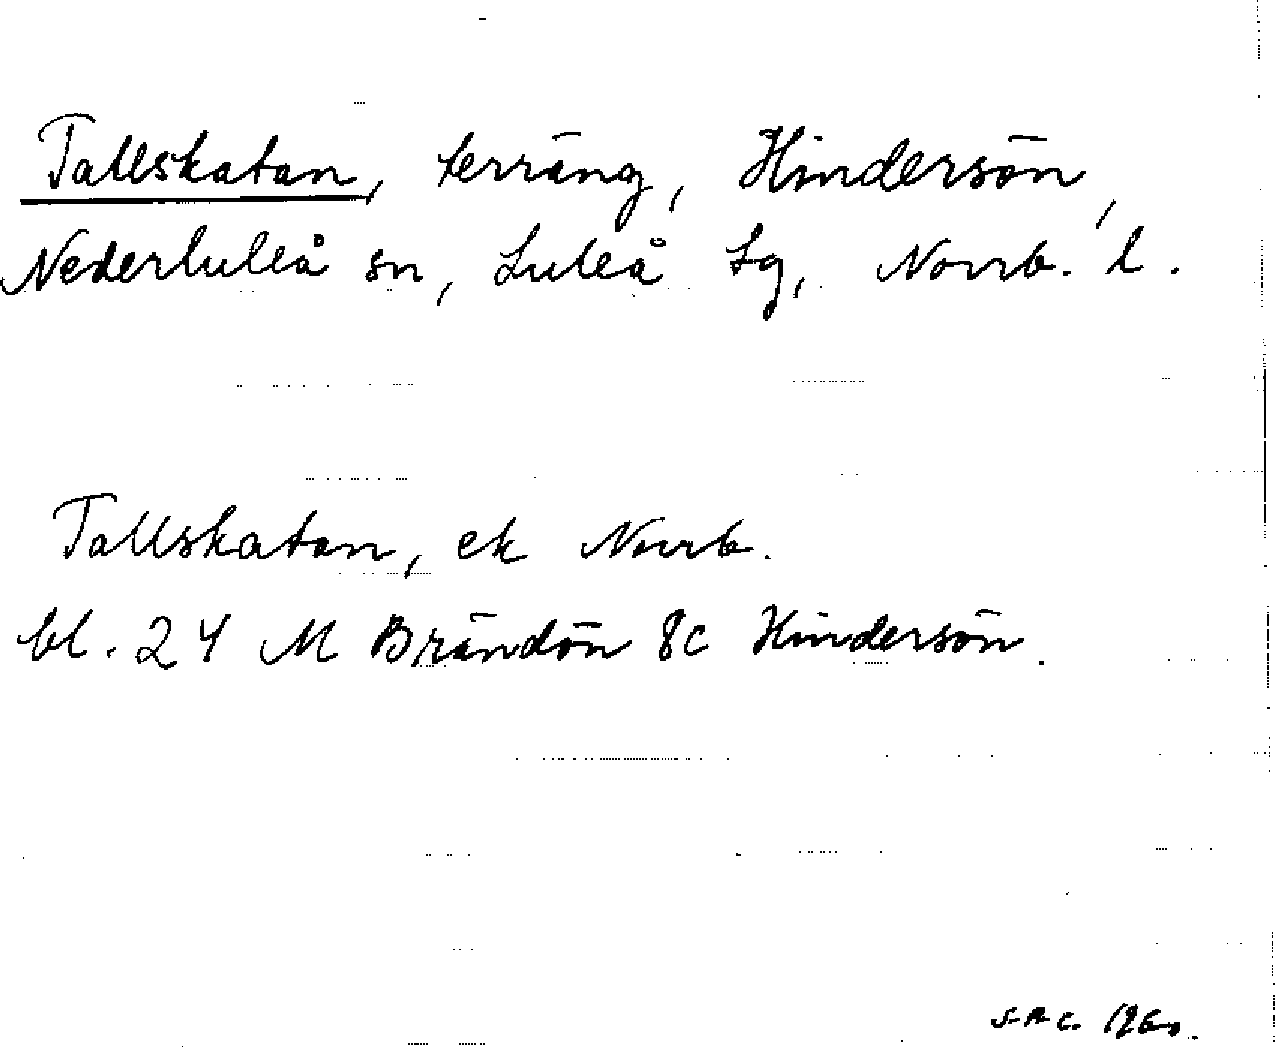 Tallskatan, terräng, Hindersön,
Nederluleå sn, Luleå tg, Norrb. l.
Tallskatan, ek Norrb.
bl. 24 M Brändön 8c Hindersön.
1960.